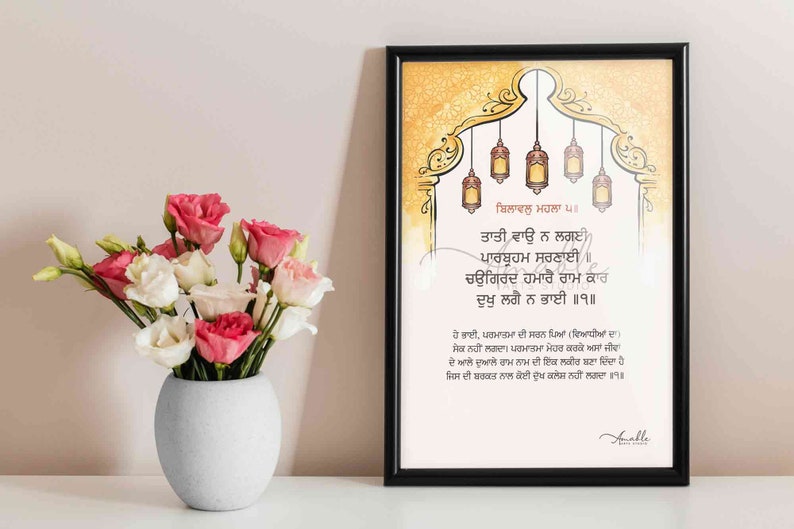 ਬਿਲਾਵਲੁ ਮਹਲਾ ੫॥
ਤਾਤੀ ਵਾਉ ਨ ਲਗਈ
ਪਾਰਬ੍ਰਹਮ ਸਰਣਾਈ ॥
ਚਉਗਿਰਦ ਹਮਾਰੈ ਰਾਮ ਕਾਰ
ਦੁਖੁ ਲਗੈ ਨ ਭਾਈ ॥੧॥
ਹੇ ਭਾਈ, ਪਰਮਾਤਮਾ ਦੀ ਸਰਨ ਪਿਆਂ (ਵਿਆਧੀਆਂ ਦਾ)
ਸੇਕ ਨਹੀਂ ਲਗਦਾ। ਪਰਮਾਤਮਾ ਮੇਹਰ ਕਰਕੇ ਅਸਾਂ ਜੀਵਾਂ
ਦੇ ਆਲੇ ਦੁਆਲੇ ਰਾਮ ਨਾਮ ਦੀ ਇੱਕ ਲਕੀਰ ਬਣਾ ਦਿੰਦਾ ਹੈ
ਜਿਸ ਦੀ ਬਰਕਤ ਨਾਲ ਕੋਈ ਦੁੱਖ ਕਲੇਸ਼ ਨਹੀਂ ਲਗਦਾ ॥੧॥
Amable
ARTS STUDIO
Amable
ARTS STUDIO